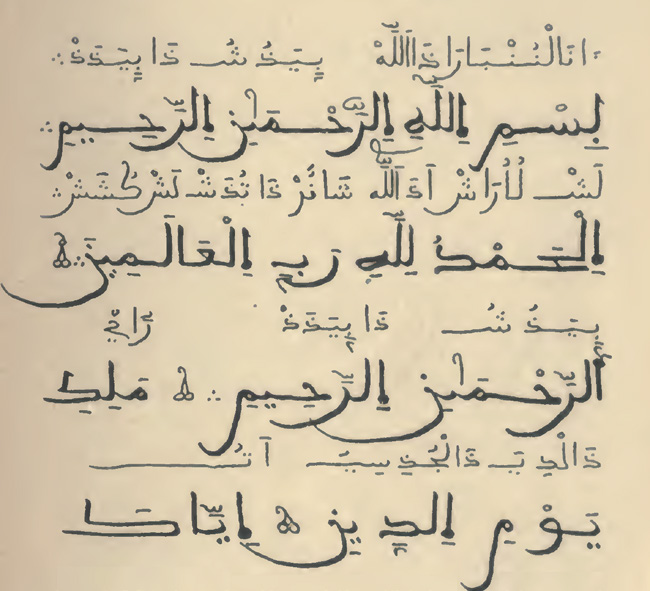 اَنَالْنُنْبَارَا ذَاَللَّهْ بِيَذُشُ ذَا بِيَذَذْ
بِسْمِ اِللَّهِ اِلرَّحْمَٰنِ اِلرَّحِيمِ
لَشْ لُاُرَاشْ اَذَاَللَّه شَانُّرْ ذَا تُذَشْ لَشْ كُشَشْ
اِلْحَمْدُ لِلَّهِ رَبِّ اِلْعَالَمِينَ
بِيَذُشُ ذَا بِيَذَذْ رَّاي
اَلرَّحْمَٰنِ اِلرَّحِيمِ مَلِكِ
ذَالْدِيَ ذَالْجُذِسِيُ اَتُ
يَوْمِ اِلدِّينِ اِيَّاكَ